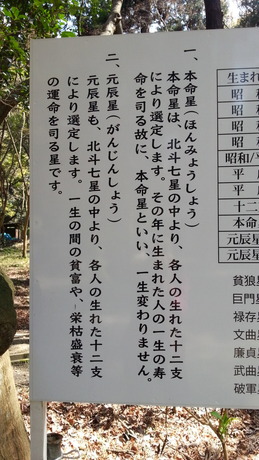 一、本命星（ほんみょうしょう）
本命星は、北斗七星の中より、各人の生れた十二支
により選定します。その年に生まれた人の一生の寿
命を司る故に、本命星といい、一生変わりません。
二、元辰星（がんじんしょう）
元辰星も、北斗七星の中より、各人の生れた十二支
により選定します。一生の間の貧富や、栄枯盛衰等
の運命を司る星です。
生まれ
昭和
昭和
昭和
昭和
昭和/
平
平
十二
本命
元辰星
元辰星
貧狼星
巨門星
禄存星
文曲星
廉貞星
武曲星
破軍星